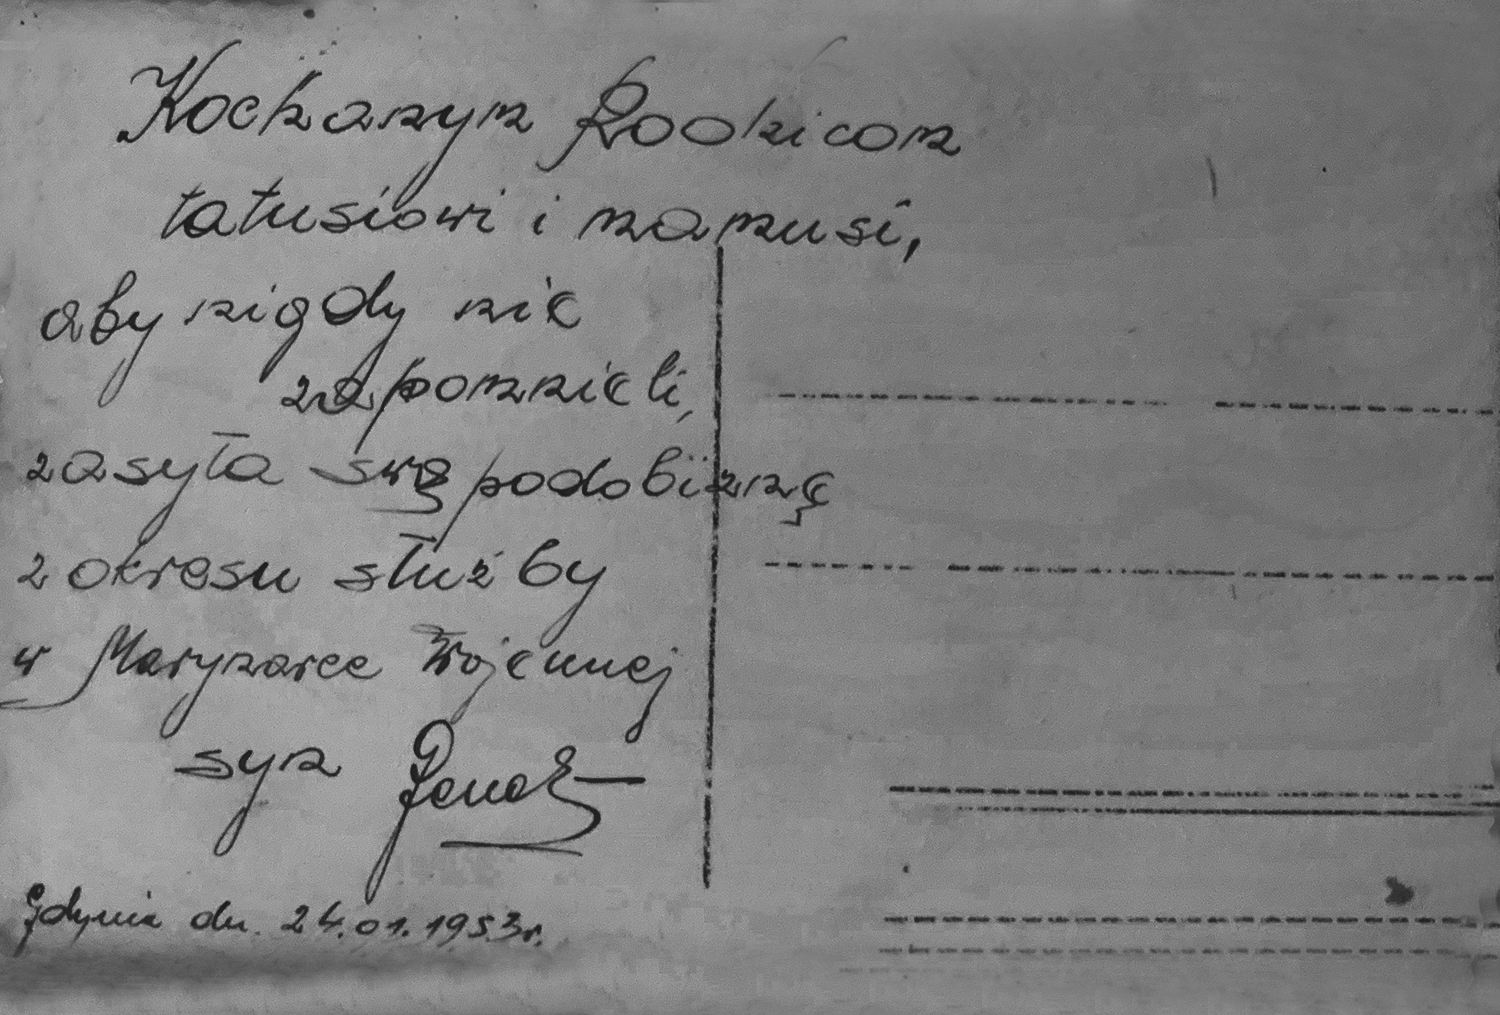 Kochanym Rodzicom
tatusiowi i mamusi,
aby nigdy nie
zapomnieli,
zasyła swą podobiznę
z okresu służby
w Marynarce Wojennej
syn
Gdynia dn. 24.01.1953r.